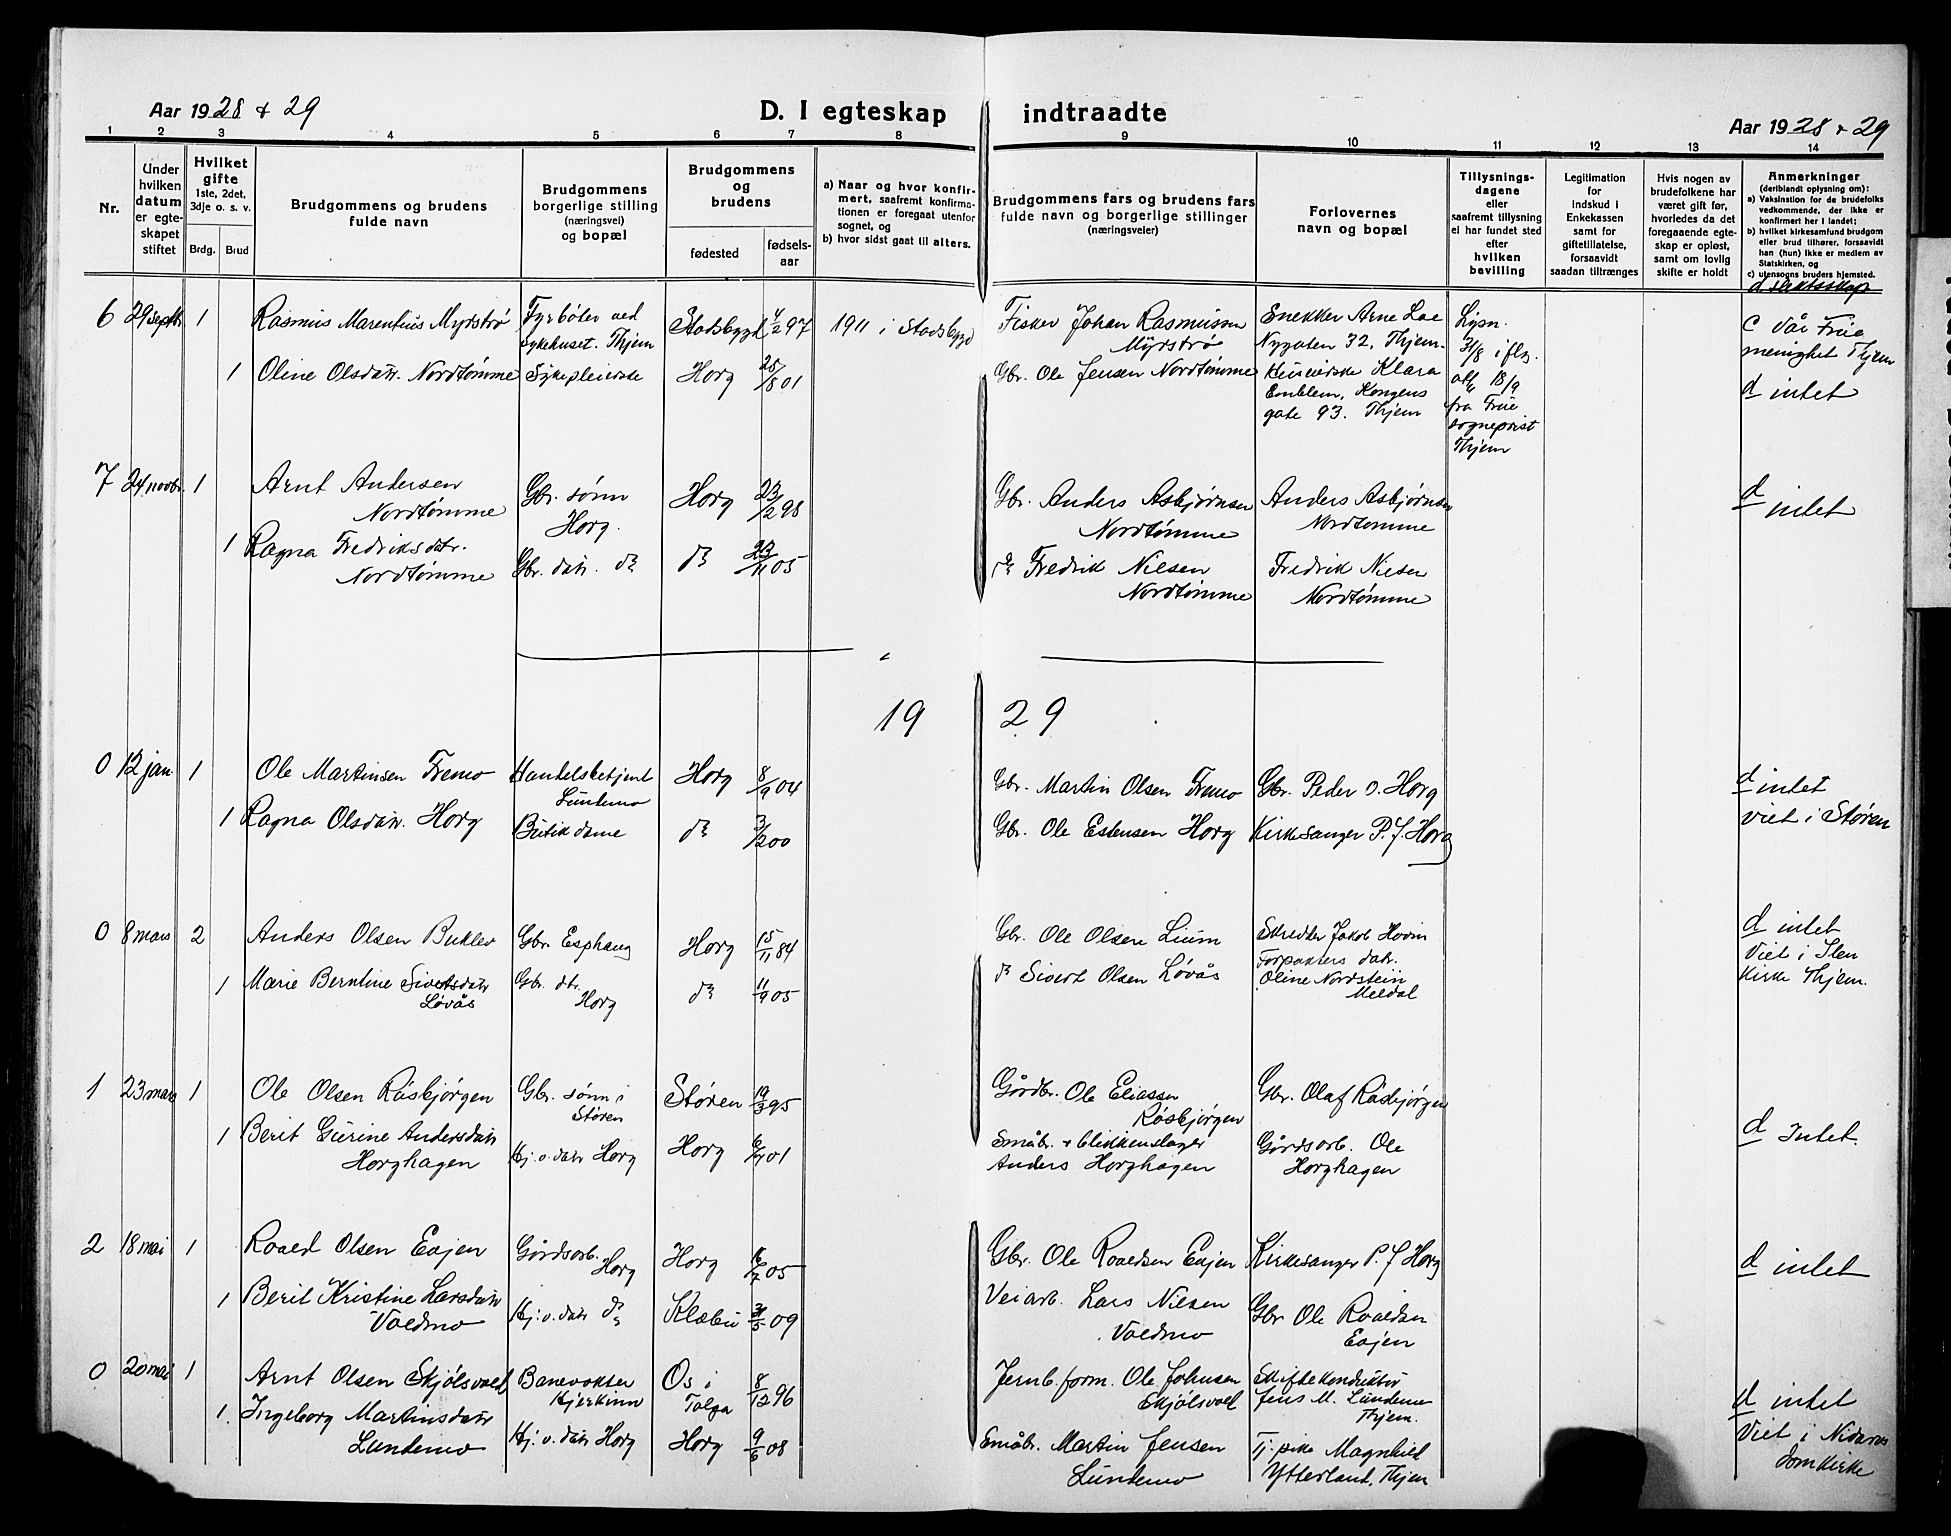 Aar 1928 & 29
D. I egteskap indtraadte
Aar 1928 & 29
1 2 3 4 5 6 7 8 9 10 11 12 13 14
Nr.
Under hvilken datum er egteskapet stiftet
Hvilket gifte
1ste, 2det, 3dje o. s. v.
Brdg. Brud
Brudgommens og brudens fulde navn
Brudgommens borgerlige stilling (næringsvei) og bopæl
Brudgommens og brudens
fødested
fødsels-aar
a) Naar og hvor konfirmert, saafremt konfirmationen er foregaat utenfor sognet, og
b) hvor sidst gaat til alters.
Brudgommens fars og brudens fars fulde navn og borgerlige stillinger (næringsveier)
Forlovernes navn og bopæl
Tillysningsdagene eller saafremt tillysning ei har fundet sted efter hvilken bevilling
Legitimation for indskud i Enkekassen samt for giftetillatelse, forsaavidt saadan tiltrænges
Hvis nogen av brudefolkene har været gift før, hvorledes da det foregaaende egteskap er opløst, samt om lovlig skifte er holdt
Anmerkninger
(deriblandt oplysning om):
a) Vaksination for de brudefolks vedkommende, der ikke er konfirmert her i landet;
b) hvilket kirkesamfund brudgom eller brud tilhører, forsaavidt han (hun) ikke er medlem av Statskirken, og
c) utensogns bruders hjemsted.
d slektsskap
6 29 septbr. 1 Rasmus Marentius Myrstrø Fyrbøter ved sykehuset. Thjem Stadsbygd 4/2 97 1911 i Stadsbygd
Fisker Johan Rasmussen Myrstrø
Snekker Arne Loe Nygaten 32, Thjem.
Lysn. 31/8 i flg. att. 18/9 fra Frue sogneprest Thjem
c Vår Frue menighet Thjem
d intet
1 Oline Olsdatr. Nordtømme Sykepleierske Horg 25/8 01
Gbr. Ole Jensen Nordtømme
Klara Emblem, Kongens gate 93. Thjem
7 24 novbr. 1 Arnt Andersen Nordtømme Gbr. sønn Horg. Horg 23/2 98
Gbr. Anders Asbjørnsen Nordtømme
Anders Asbjørnsen Nordtømme
d intet
1 Ragna Fredriksdatr. Nordtømme Gbr. datr. do do 23/11 05
do Fredrik Nilsen Nordtømme
Fredrik Nilsen Nordtømme
1929
0 12 jan. 1 Ole Martinsen Fremo Handelsbetjent Lundemo Horg 8/9 04
Gbr. Martin Olsen Fremo
Gbr. Peder O. Horg
d intet
viet i Støren
1 Ragna Olsdatr. Horg Butikdame do 3/2 00
Gbr. Ole Estensen Horg
Kirkesanger P. J. Horg
0 8 mars 2 Anders Olsen Buklev Gbr. Esphaug Horg 15/11 84
Gbr. Ole Olsen Lium
Skredder Jakob Hovin
d intet
Viet i Ilen Kirke Thjem.
1 Marie Berntine Sivertsdatr Løvås Gbr. dtr. Horg do 11/9 05
do Sivert Olsen Løvås
Forpakters datr. Oline Nordstein Meldal
1 23 mars 1 Ole Olsen Råsbjørgen Gbr. sønn i Støren Støren 19/3 95
Gårdbr. Ole Eliassen Råsbjørgen
Gbr. Olaf Råsbjørgen
d Intet.
1 Berit Gurine Andersdatr Horghagen Hj. v. datr Horg Horg
Småbr. + blikkenslager Anders Horghagen
Gårdsarb. Ole Horghagen
2 18 mai 1 Roald Olsen Evjen Gårdsarb. Horg Horg
Gbr. Ole Roaldsen Evjen
Kirkesanger P. J. Horg
d intet
1 Berit Kristine Larsdatr Voldmo Hj. v. datr do Klæbu 31/5 09
Veiarb. Lars Nilsen Voldmo
Gbr Ole Roaldsen Evjen
0 20 mai 1 Arnt Olsen Skjølsvold Banevokter Hjerkinn Os i Tolga 8/12 96
Jernb. form. Ole Johnsen Skjølsvold
Skiftekonduktør Jens M. Lundemo Thjem.
d intet
Viet i Nidaros Domkirke
1 Ingeborg Martinsdatr Lundemo Hj. v. datr Horg Horg 9/6 08
Småbr. Martin Jensen Lundemo
Tj. pike Magnhild Ytterland, Thjem